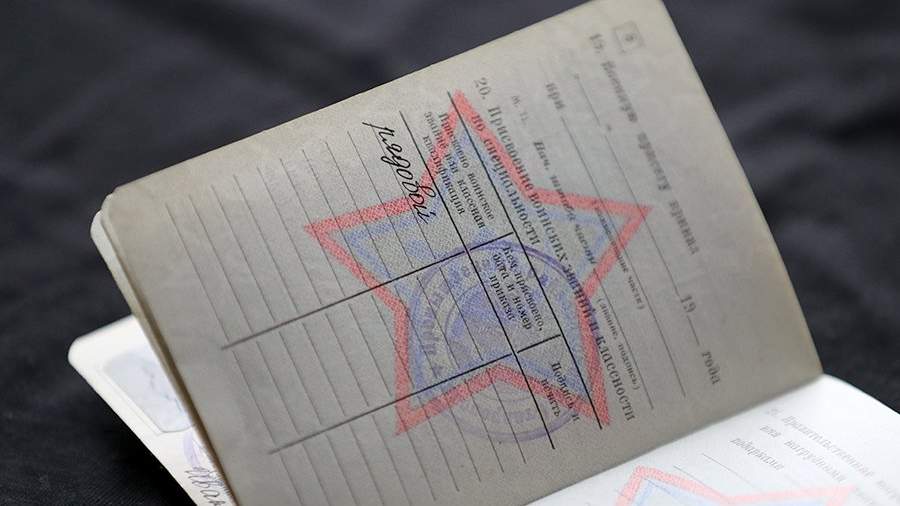 19. Военную присягу принял
при
19 года
Нач. штаба части
(наименование части)
(звание, подпись)
М. П.
20. Присвоение воинских званий и классности
по специальности
Присвоено воинское
звание или классная
квалификация
Кем присвоено,
дата и номер
приказа
Подпись и
печать
рядовой
21. Правительственные
или нагрудным
подарками
Иван